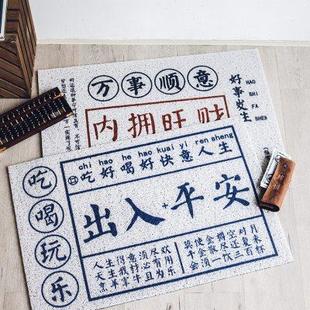 万事顺意
好事发生
HAO
SHI
FA
SHEN
内拥旺财
chi hao he hao kuai yi ren sheng
吃好喝好快意人生
吃喝玩乐
出入平安
人生得意须尽欢
莫使金樽空对月
天生我材必有用
千金散尽还复来
烹羊宰牛且为乐
会须一饮三百杯